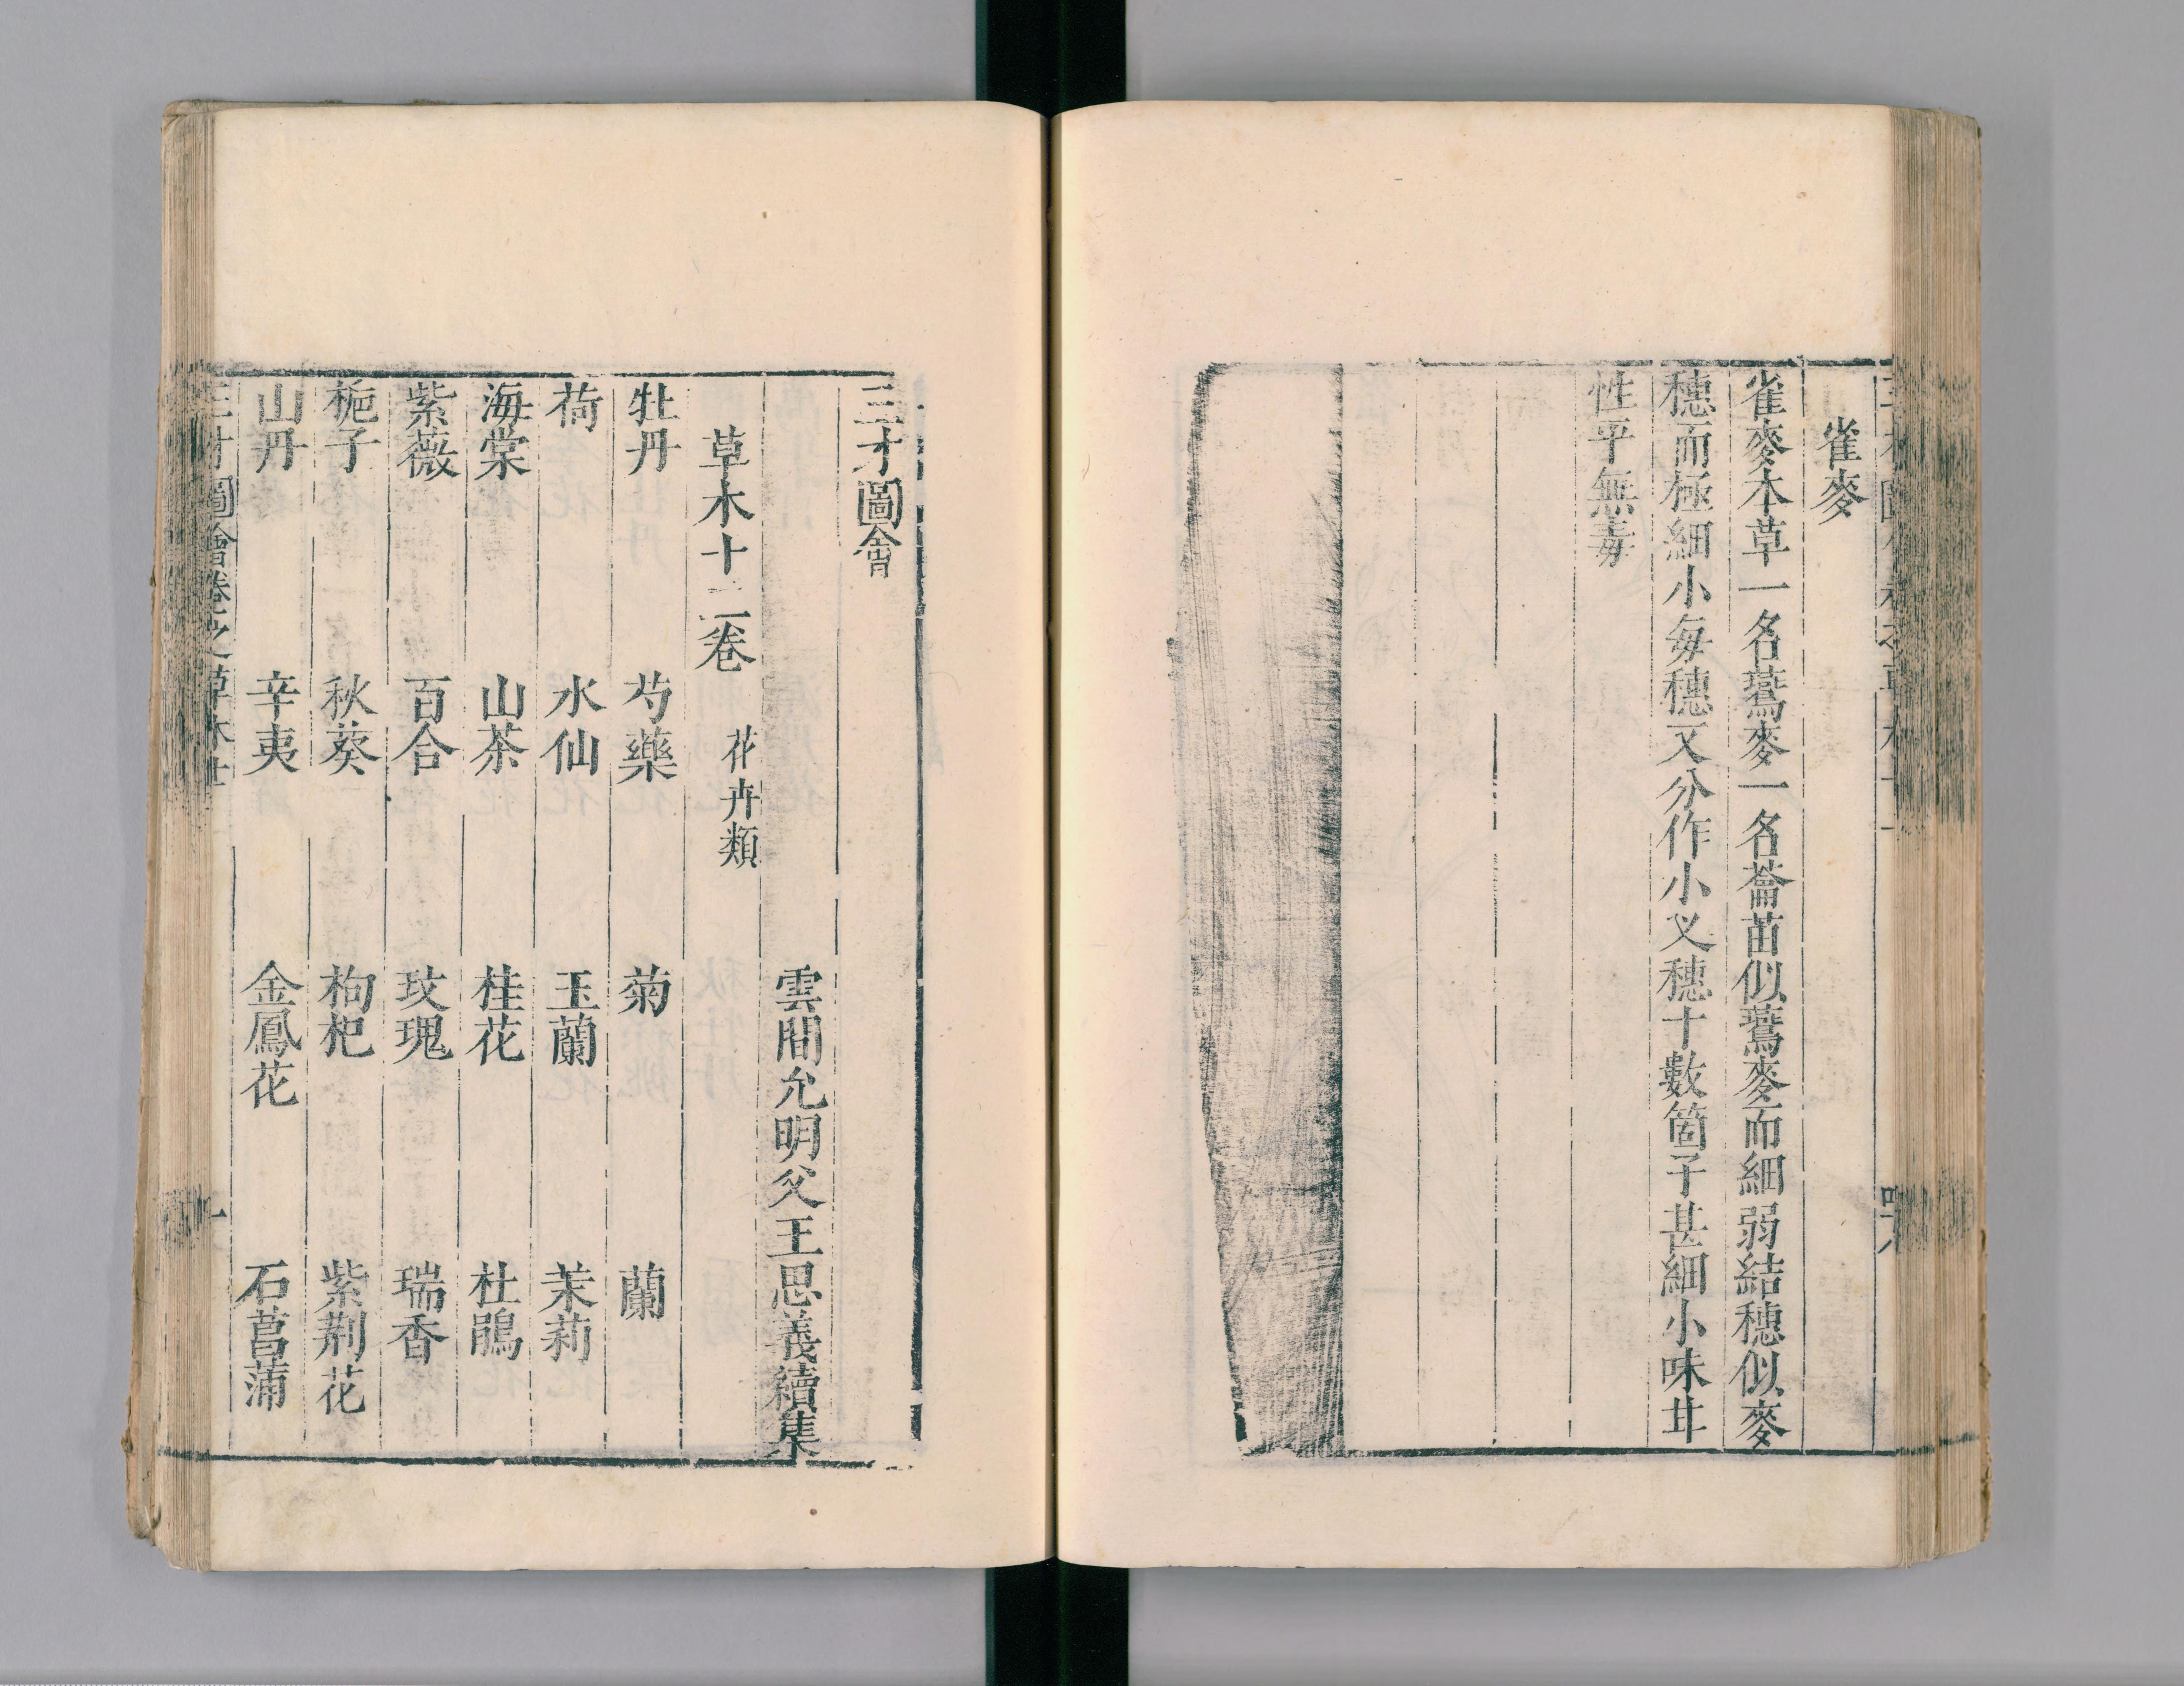 雀麥
雀麥本草一名鷰麥一名蘥苗似鷰麥而細弱結穗似麥
穗而極細小每穗又分作小叉穗十數箇子甚細小味甘
性平無毒
三才圖會
雲間允明父王思義續集
草木十二卷 花卉類
牡丹 芍藥 菊 蘭
荷 水仙 玉蘭 茉莉
海棠 山茶 桂花 杜鵑
紫薇 百合 玫瑰 瑞香
梔子 秋葵 枸杞 紫荆花
山丹 辛夷 金鳳花 石菖蒲
圖會卷之草木十二 一